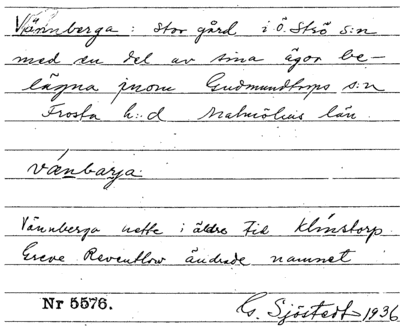 Vännberga: stor gård i Ö. Strö s:n
med en del av sina ägor be-
lägna inom Gudmundtorps s:n
Frosta h:d Malmöhus län.
vä́nbarja.
Vännberga hette i äldre tid Klinstorp.
Greve Reventlow ändrade namnet
Nr 5576.
G. Sjöstedt 1936